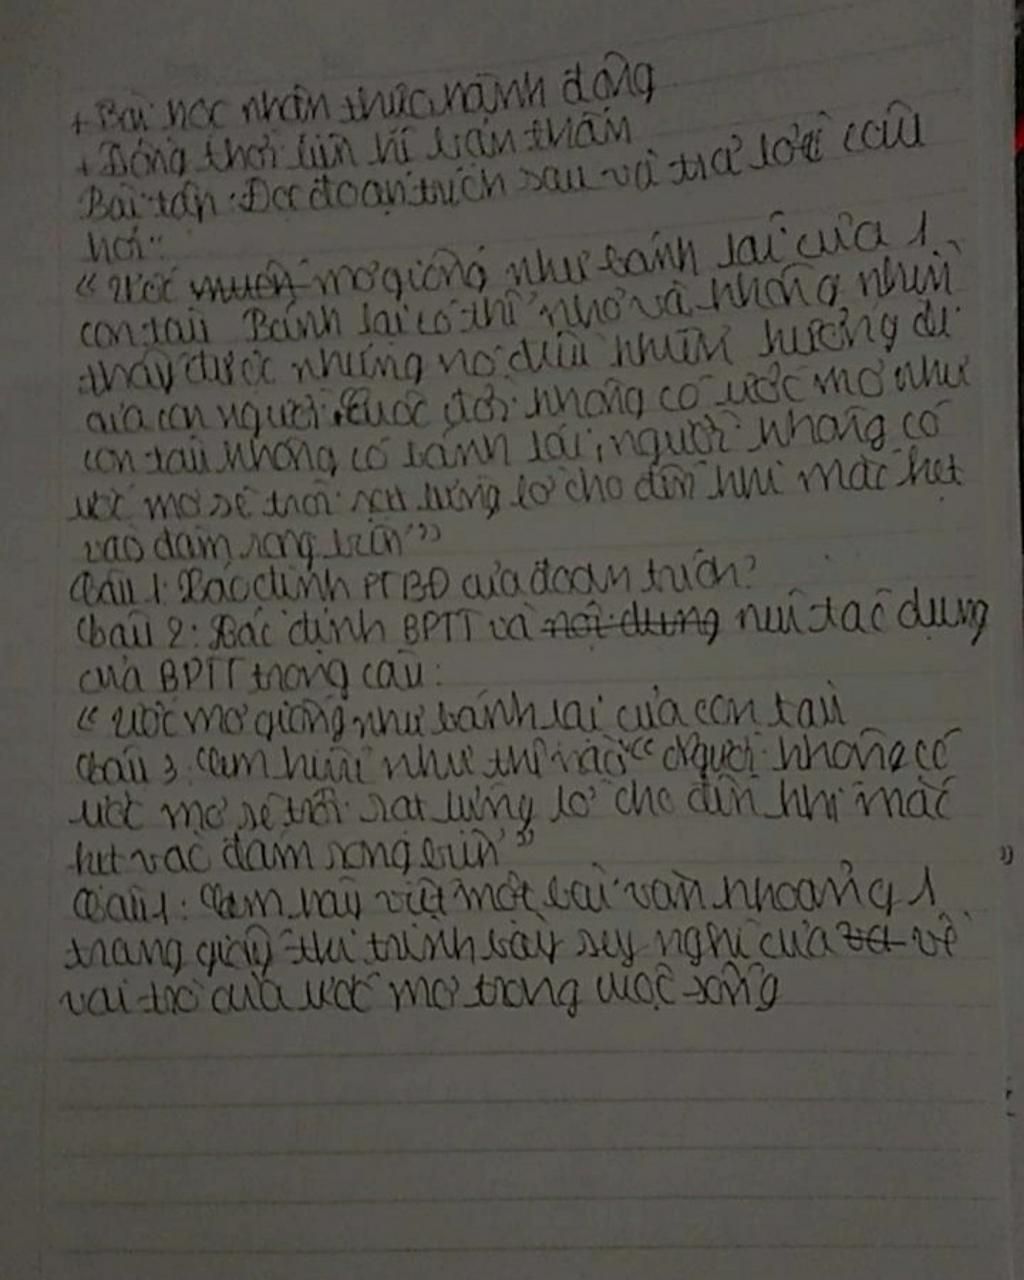 + Bài học nhận thức hành động
+ Đồng thời liên hệ bản thân
Bài tập: Đọc đoạn trích sau và trả lời câu
hỏi:
"Ước muốn mơ giống như bánh lái của 1
con tàu Bánh lái có thể nhỏ và không nhìn
thấy được nhưng nó điều khiển hướng đi
của con người. Cuộc đời không có ước mơ như
con tàu không có bánh lái, người không có
ước mơ sẽ trôi dạt lửng lơ cho đến khi mắc kẹt
vào đám rong biển"
Câu 1: Xác định PTBĐ của đoạn trích?
Câu 2: Xác định BPTT và nội dung nêu tác dụng
của BPTT trong câu:
"Ước mơ giống như bánh lái của con tàu
Câu 3: Em hiểu như thế nào "Người không có
ước mơ sẽ trôi dạt lửng lơ cho đến khi mắc
kẹt vào đám rong biển"
Câu 4: Em hãy viết một bài văn khoảng 1
trang giấy thi trình bày suy nghĩ của về
vai trò của ước mơ trong cuộc sống